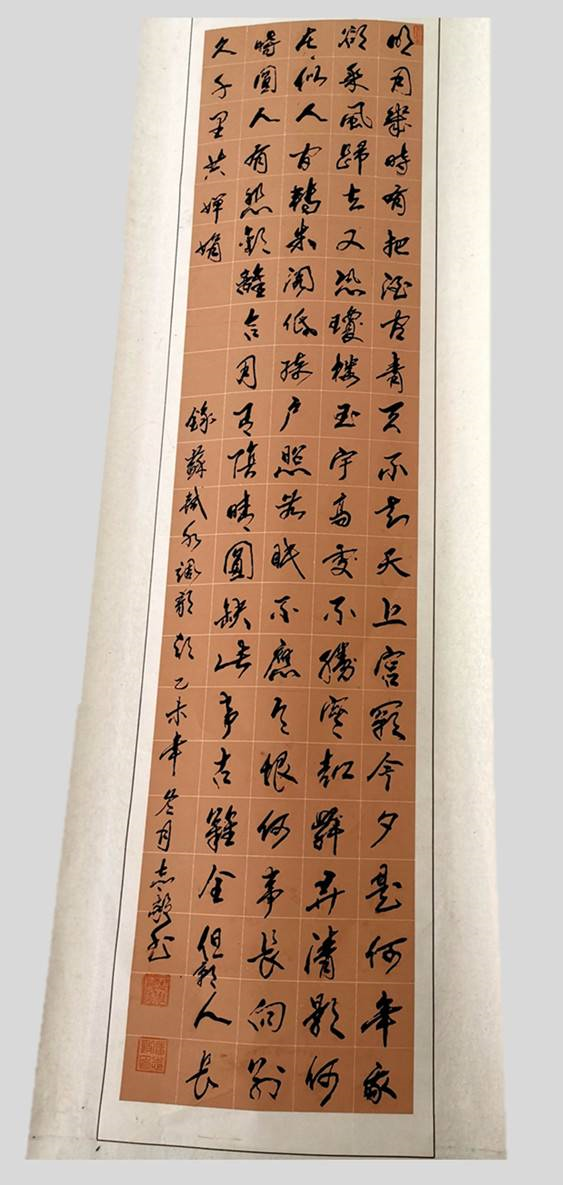 明月幾時有把酒问青天不知天上宫闕今夕是何年我
欲乘風歸去又恐瓊樓玉宇高處不勝寒起舞弄清影何
在似人间轉朱阁低绮户照無眠不應有恨何事長向别
時圓人有悲歡離合月有陰晴圓缺此事古難全但願人長
久千里共嬋娟
録蘇軾水調歌頭乙未年冬月志书